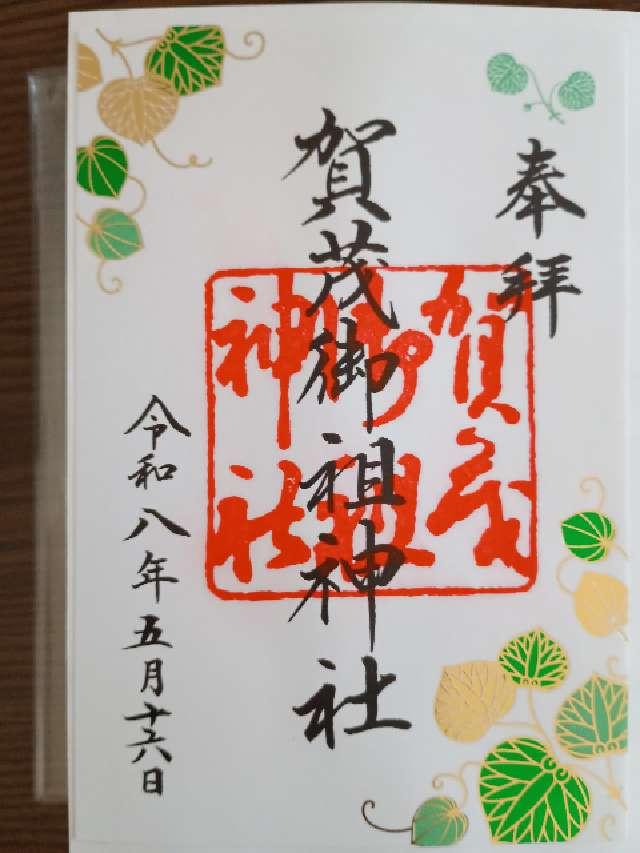 奉拝
賀茂御祖神社
賀茂
御祖
神社
令和八年五月十六日